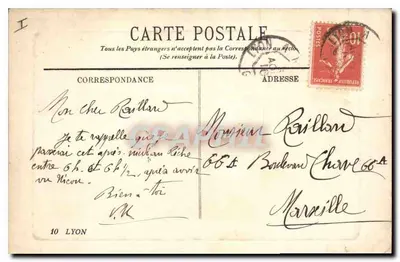 I
CARTE POSTALE
Tous les Pays étrangers n'acceptent pas la Correspondance au recto.
(Se renseigner à la Poste).
CORRESPONDANCE
ADRESSE
10
POSTES
LYON
Mon cher Raillard
Je te rappelle que
passerai cet après
entre 6h. et 6h½, après avoir
vu
Bien à toi
Monsieur Raillard
66A Boulevard Chave 66A
Marseille
10 LYON